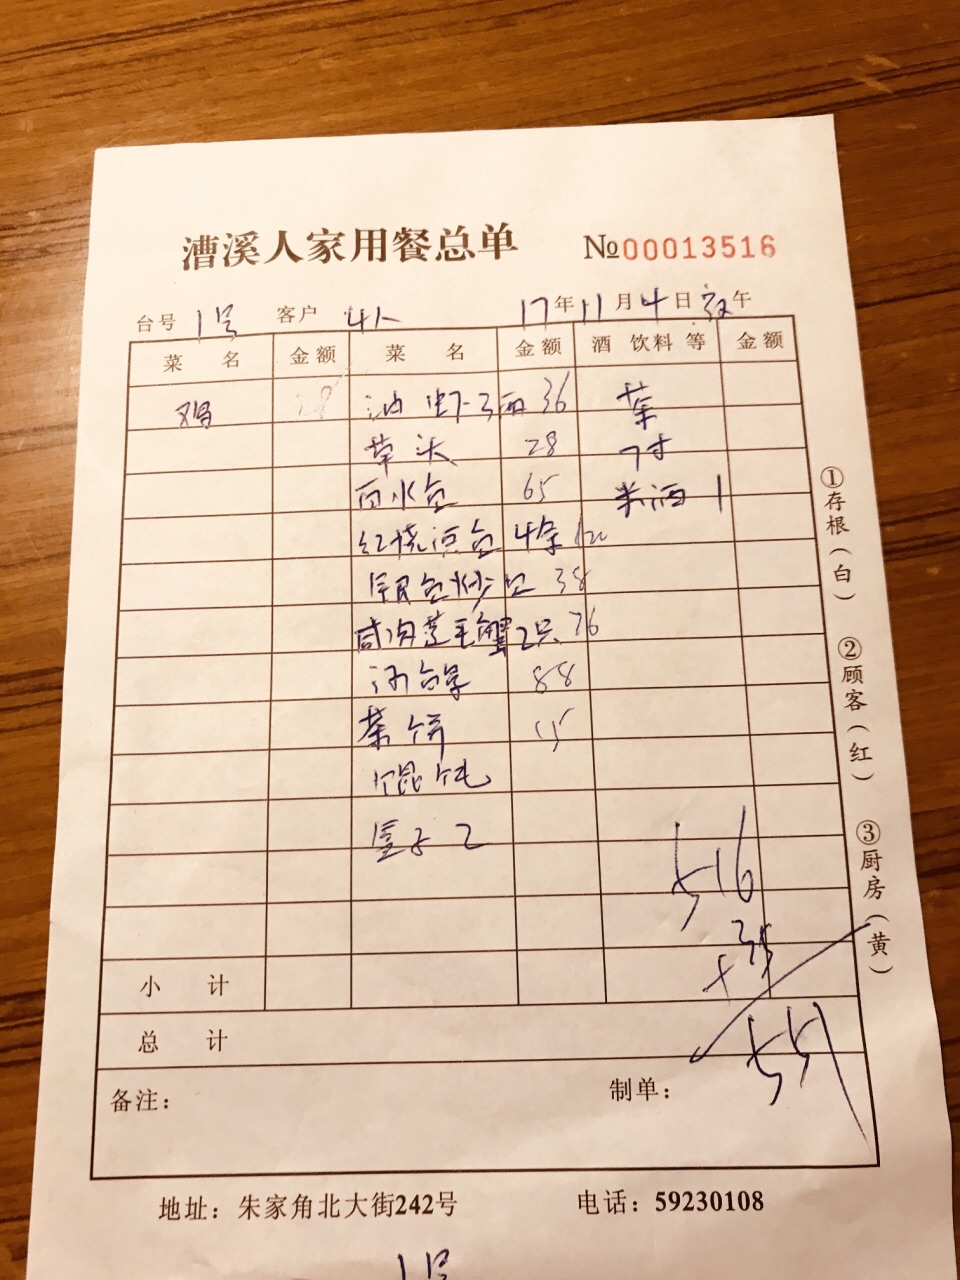 漕溪人家用餐总单 №00013516
台号 1号 客户 4人 17年11月4日 午
菜 名 金额 菜 名 金额 酒 饮料 等 金额
鸡 28 油 3两 36 茶
草头 28
白水鱼 65 米酒 1
红烧 鱼 4条
鱼炒 38
咸肉 毛蟹 2只 76
88
菜 饼 15
馄饨
2
516
+ 35
551
小 计
总 计
备注： 制单：
地址：朱家角北大街242号 电话：59230108
1号
①存根（白） ②顾客（红） ③厨房（黄）